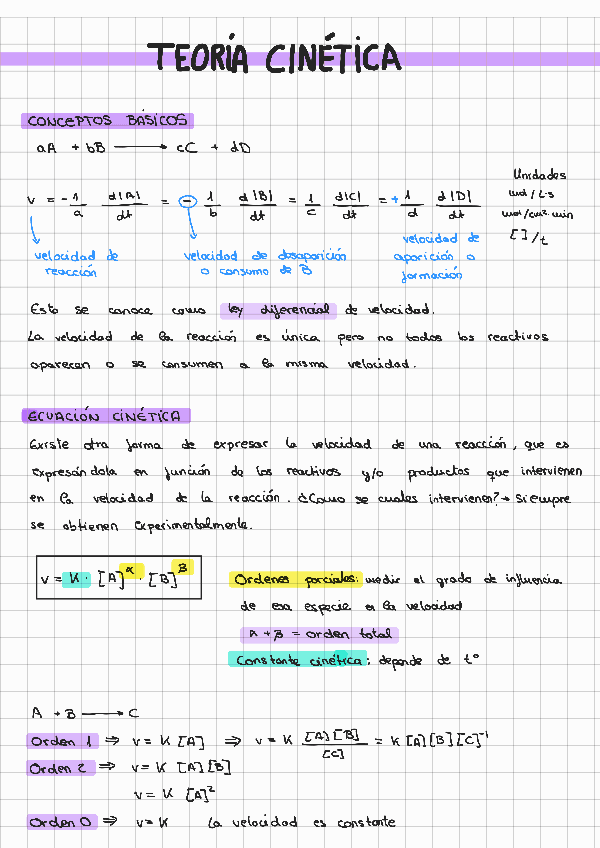 TEORÍA CINÉTICA
CONCEPTOS BÁSICOS
aA + bB ⟶ cC + dD
Unidades
mol/L·s
mol/cm³·min
[ ]/t
v = -1/a d|A|/dt = - 1/b d|B|/dt = 1/c d|C|/dt = +1/d d|D|/dt
velocidad de reacción
velocidad de desaparición o consumo de B
velocidad de aparición o formación
Esto se conoce como ley diferencial de velocidad.
La velocidad de la reacción es única pero no todos los reactivos
aparecen o se consumen a la misma velocidad.
ECUACIÓN CINÉTICA
Existe otra forma de expresar la velocidad de una reacción, que es
expresándola en función de los reactivos y/o productos que intervienen
en la velocidad de la reacción. ¿Como se cuales intervienen? → Siempre
se obtienen experimentalmente.
v = K · [A]^α · [B]^β
Ordenes parciales: medir el grado de influencia
de esa especie en la velocidad
α + β = orden total
Constante cinética: depende de tº
A + B ⟶ C
Orden 1 ⇒ v = K [A] ⇒ v = K [A][B]/[C] = K [A][B][C]⁻¹
Orden 2 ⇒ v = K [A][B]
v = K [A]²
Orden 0 ⇒ v = K La velocidad es constante